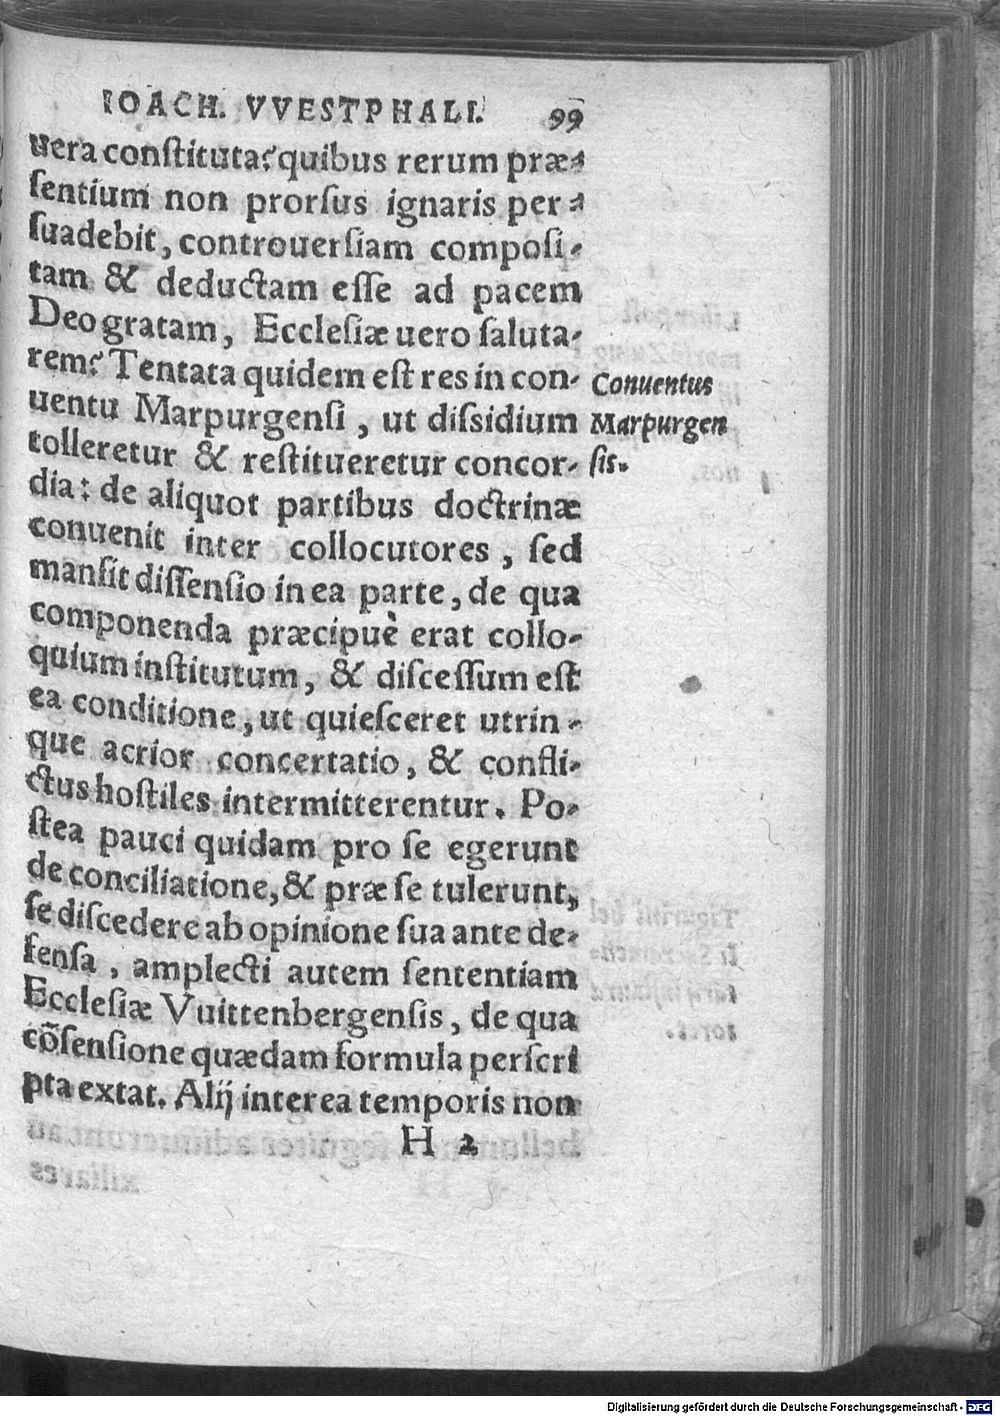 IOACH. VVESTPHALI. 99
uera constituta? quibus rerum præ-
ſentium non prorſus ignaris per-
ſuadebit, controuerſiam compoſi-
tam & deductam eſſe ad pacem
Deo gratam, Eccleſiæ uero ſaluta-
rem? Tentata quidem eſt res in con-
uentu Marpurgenſi, ut diſsidium
tolleretur & reſtitueretur concor-
dia: de aliquot partibus doctrinæ
conuenit inter collocutores, ſed
manſit diſſenſio in ea parte, de qua
componenda præcipuè erat collo-
quium inſtitutum, & diſceſſum eſt
ea conditione, ut quieſceret utrin-
que acrior concertatio, & confli-
ctus hoſtiles intermitterentur. Po-
ſtea pauci quidam pro ſe egerunt
de conciliatione, & præ ſe tulerunt,
ſe diſcedere ab opinione ſua ante de-
fenſa, amplecti autem ſententiam
Eccleſiæ Vuittenbergenſis, de qua
cõſenſione quædam formula perſcri
pta extat. Alij interea temporis non
H 2
Conuentus
Marpurgen
ſis.
Digitalisierung gefördert durch die Deutsche Forschungsgemeinschaft - DFG